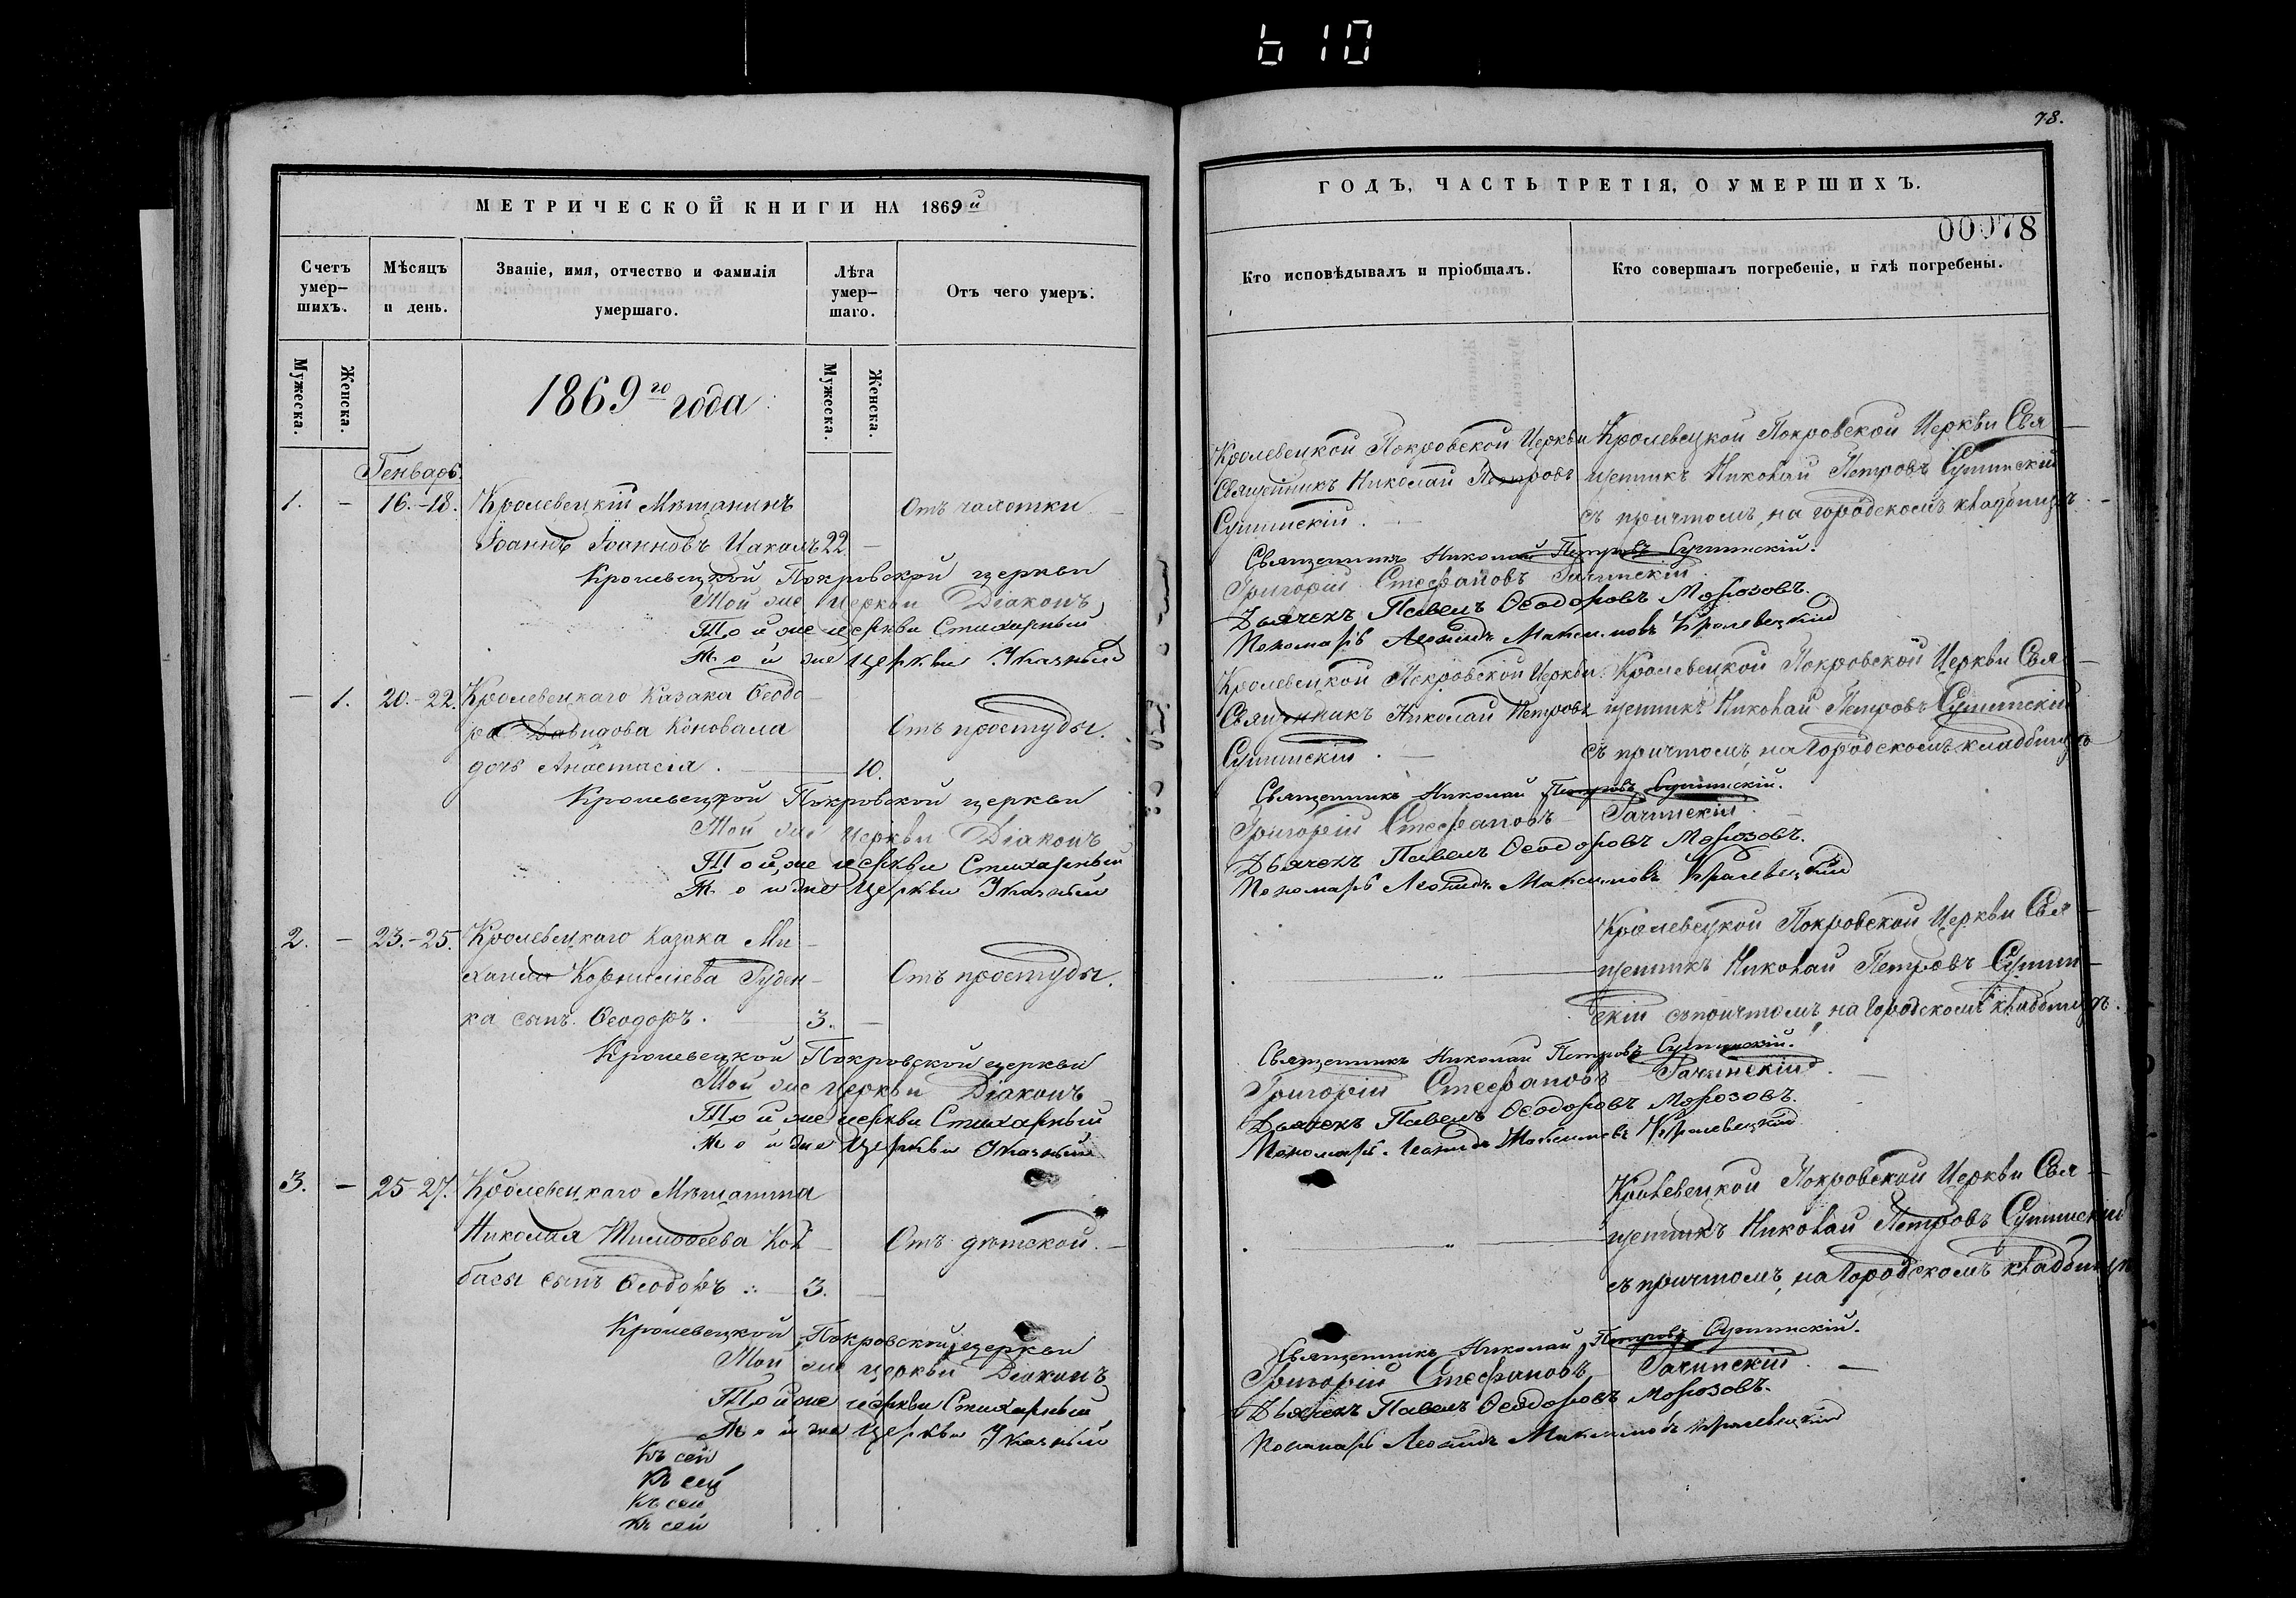 610
78.
МЕТРИЧЕСКОЙ КНИГИ НА 1869й
Счетъ умер-
шихъ.
Мѣсяцъ
и день.
Званіе, имя, отчество и фамилія
умершаго.
Лѣта
умер-
шаго.
Отъ чего умеръ.
Мужеска.
Женска.
Мужеска.
Женска.
1869го года
Генварь
1. - 16.-18. Кролевецкій Мѣщанинъ Отъ чахотки
Іоаннъ Іоанновъ Цакалъ 22
Кролевецкой Покровской церкви
Той же церкви Діаконъ
Той же церкви Стихарный
Той же церкви Указный
- 1. 20.-22. Кролевецкаго Казака Ѳеодо-
ра Давидова Коновала Отъ простуды.
дочь Анастасія. 10.
Кролевецкой Покровской церкви
Той же церкви Діаконъ
Той же церкви Стихарный
Той же церкви Указный
2. - 23.-25. Кролевецкаго Казака Ми-
хаила Корнилiева Гуден- Отъ простуды.
ка сынъ Ѳеодоръ. 3.
Кролевецкой Покровской церкви
Той же церкви Діаконъ
Той же церкви Стихарный
Той же церкви Указный
3. - 25-27. Кролевецкаго Мѣщанина
Николая Тимоѳеева Кол- Отъ дѣтской.
басы сынъ Ѳеодоръ 3.
Кролевецкой Покровской церкви
Той же церкви Діаконъ
Той же церкви Стихарный
Той же церкви Указный
Къ сей
Къ сей
Къ сей
Къ сей
ГОДЪ, ЧАСТЬ ТРЕТІЯ, О УМЕРШИХЪ.
00078
Кто исповѣдывалъ и пріобщалъ.
Кто совершалъ погребеніе, и гдѣ погребены.
Кролевецкой Покровской Церкви Кролевецкой Покровской Церкви Свя-
Священникъ Николай Петровъ щенникъ Николай Петровъ
съ причтомъ, на городскомъ кладбищѣ.
Священникъ Николай Петровъ
Григорій Стефановъ
Дьячекъ Павелъ Ѳеодоровъ Морозовъ.
Пономарь Леонидъ Максимовъ Кролевецкій
Кролевецкой Покровской Церкви Кролевецкой Покровской Церкви Свя-
Священникъ Николай Петровъ щенникъ Николай Петровъ
съ причтомъ, на Городскомъ кладбищѣ
Священникъ Николай Петровъ
Григорій Стефановъ
Дьячекъ Павелъ Ѳеодоровъ Морозовъ.
Пономарь Леонидъ Максимовъ Кролевецкій
Кролевецкой Покровской Церкви Свя-
щенникъ Николай Петровъ
скій съ причтомъ, на Городскомъ кладбищѣ.
Священникъ Николай Петровъ
Григорій Стефановъ
Дьячекъ Павелъ Ѳеодоровъ Морозовъ.
Пономарь Леонидъ Максимовъ Кролевецкій
Кролевецкой Покровской Церкви Свя-
щенникъ Николай Петровъ
съ причтомъ, на Городскомъ кладбищѣ
Священникъ Николай Петровъ
Григорій Стефановъ
Дьячекъ Павелъ Ѳеодоровъ Морозовъ.
Пономарь Леонидъ Максимовъ Кролевецкій